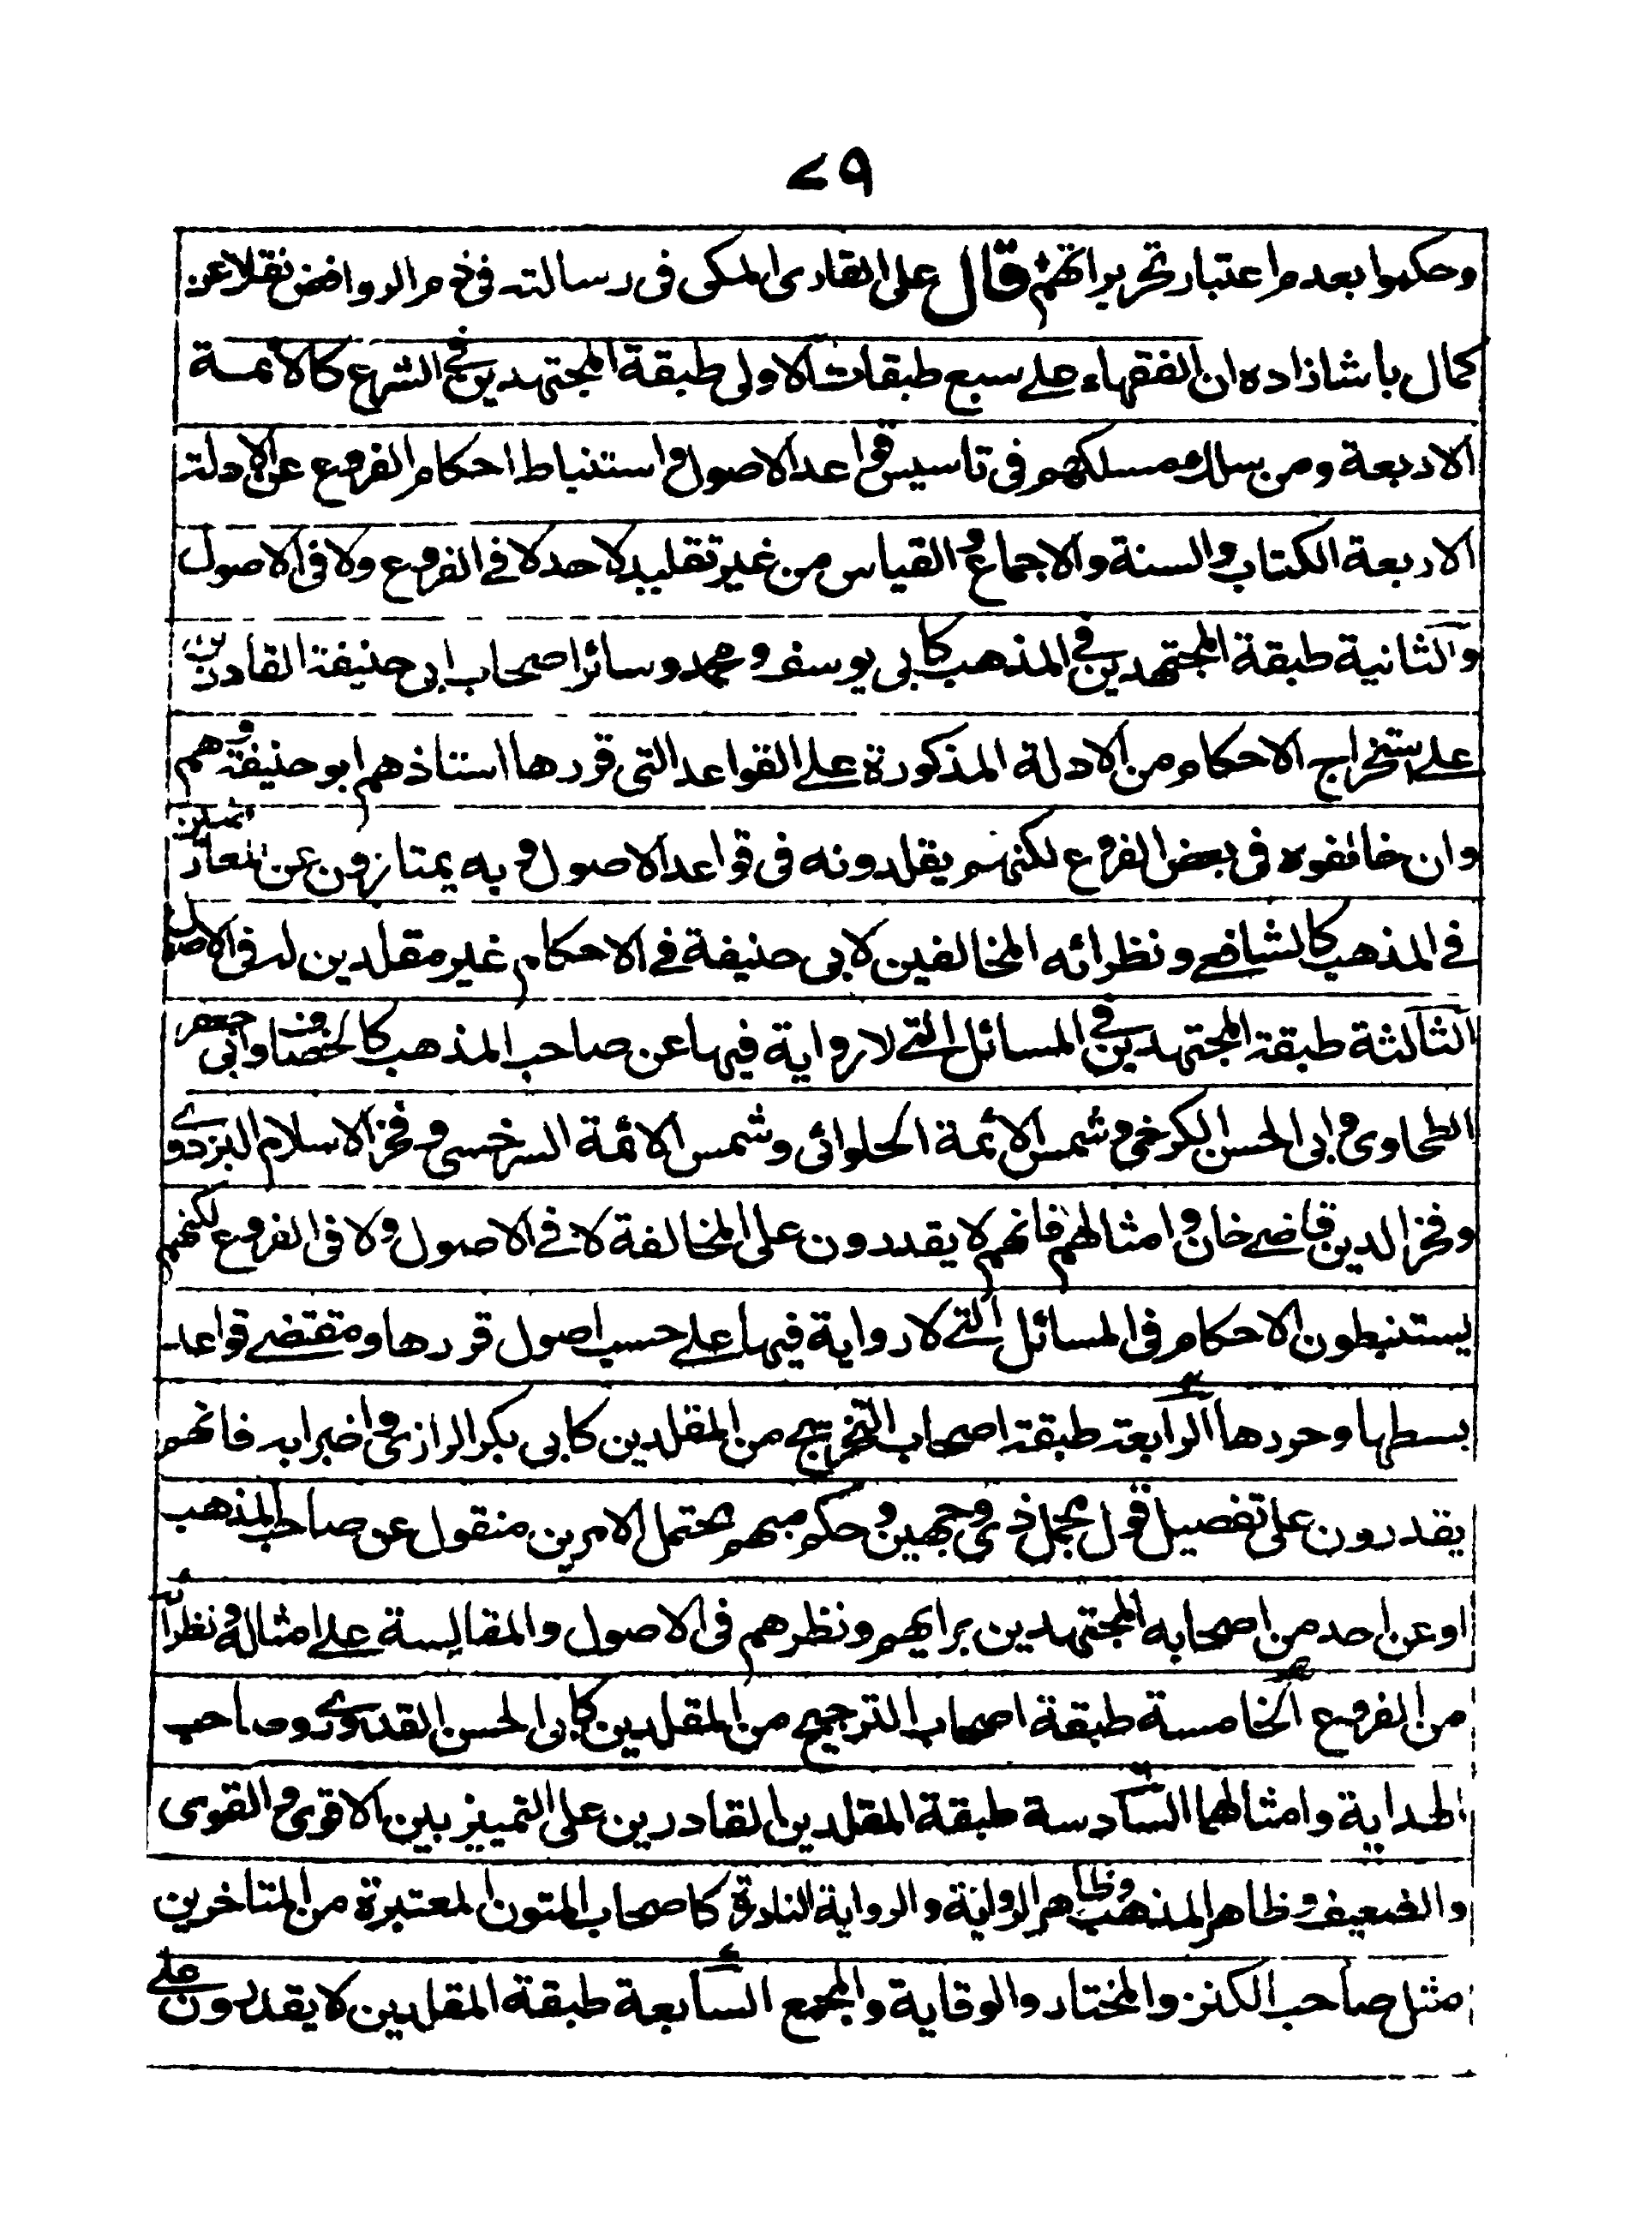 ٢٩
وحكموا بعدم اعتبار تحريراتهم قال على القارى المكى فى رسالته فى ذم الروافض نقلا عن
كمال باشا زاده ان الفقهاء على سبع طبقات الاولى طبقة المجتهدين فى الشرع كالائمة
الاربعة ومن سلك مسلكهم فى تاسيس قواعد الاصول واستنباط احكام الفروع عن الادلة
الاربعة الكتاب والسنة والاجماع والقياس من غير تقليد لاحد لا فى الفروع ولا فى الاصول
والثانية طبقة المجتهدين فى المذهب كابى يوسف ومحمد وسائر اصحاب ابى حنيفة القادرين
على استخراج الاحكام من الادلة المذكورة على القواعد التى قررها استاذهم ابو حنيفة وهم
وان خالفوه فى بعض الفروع لكنهم يقلدونه فى قواعد الاصول وبه يمتازون عن المعارضين
فى المذهب كالشافعى ونظرائه المخالفين لابى حنيفة فى الاحكام غير مقلدين له فى الاصول
الثالثة طبقة المجتهدين فى المسائل التى لا رواية فيها عن صاحب المذهب كالخصاف وابى جعفر
الطحاوى وابى الحسن الكرخى وشمس الائمة الحلوائى وشمس الائمة السرخسى وفخر الاسلام البزدوى
وفخر الدين قاضى خان وامثالهم فانهم لا يقدرون على المخالفة لا فى الاصول ولا فى الفروع لكنهم
يستنبطون الاحكام فى المسائل التى لا رواية فيها على حسب اصول قررها ومقتضى قواعد
بسطها وحررها الرابعة طبقة اصحاب التخريج من المقلدين كابى بكر الرازى واضرابه فانهم
يقدرون على تفصيل قول مجمل ذى وجهين وحكم مبهم محتمل الامرين منقول عن صاحب المذهب
او عن احد من اصحابه المجتهدين برايهم ونظرهم فى الاصول والمقايسة على امثاله ونظرائه
من الفروع الخامسة طبقة اصحاب الترجيح من المقلدين كابى الحسن القدورى وصاحب
الهداية وامثالهما السادسة طبقة المقلدين القادرين على التمييز بين الاقوى والقوى
والضعيف وظاهر المذهب وظاهر الرواية والرواية النادرة كاصحاب المتون المعتبرة من المتاخرين
مثل صاحب الكنز والمختار والوقاية والمجمع السابعة طبقة المقلدين لا يقدرون على